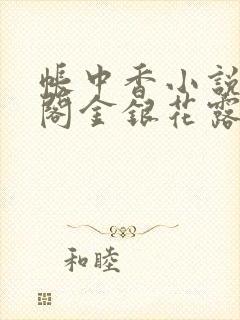 帳中香小說
閣金銀花露
和睦